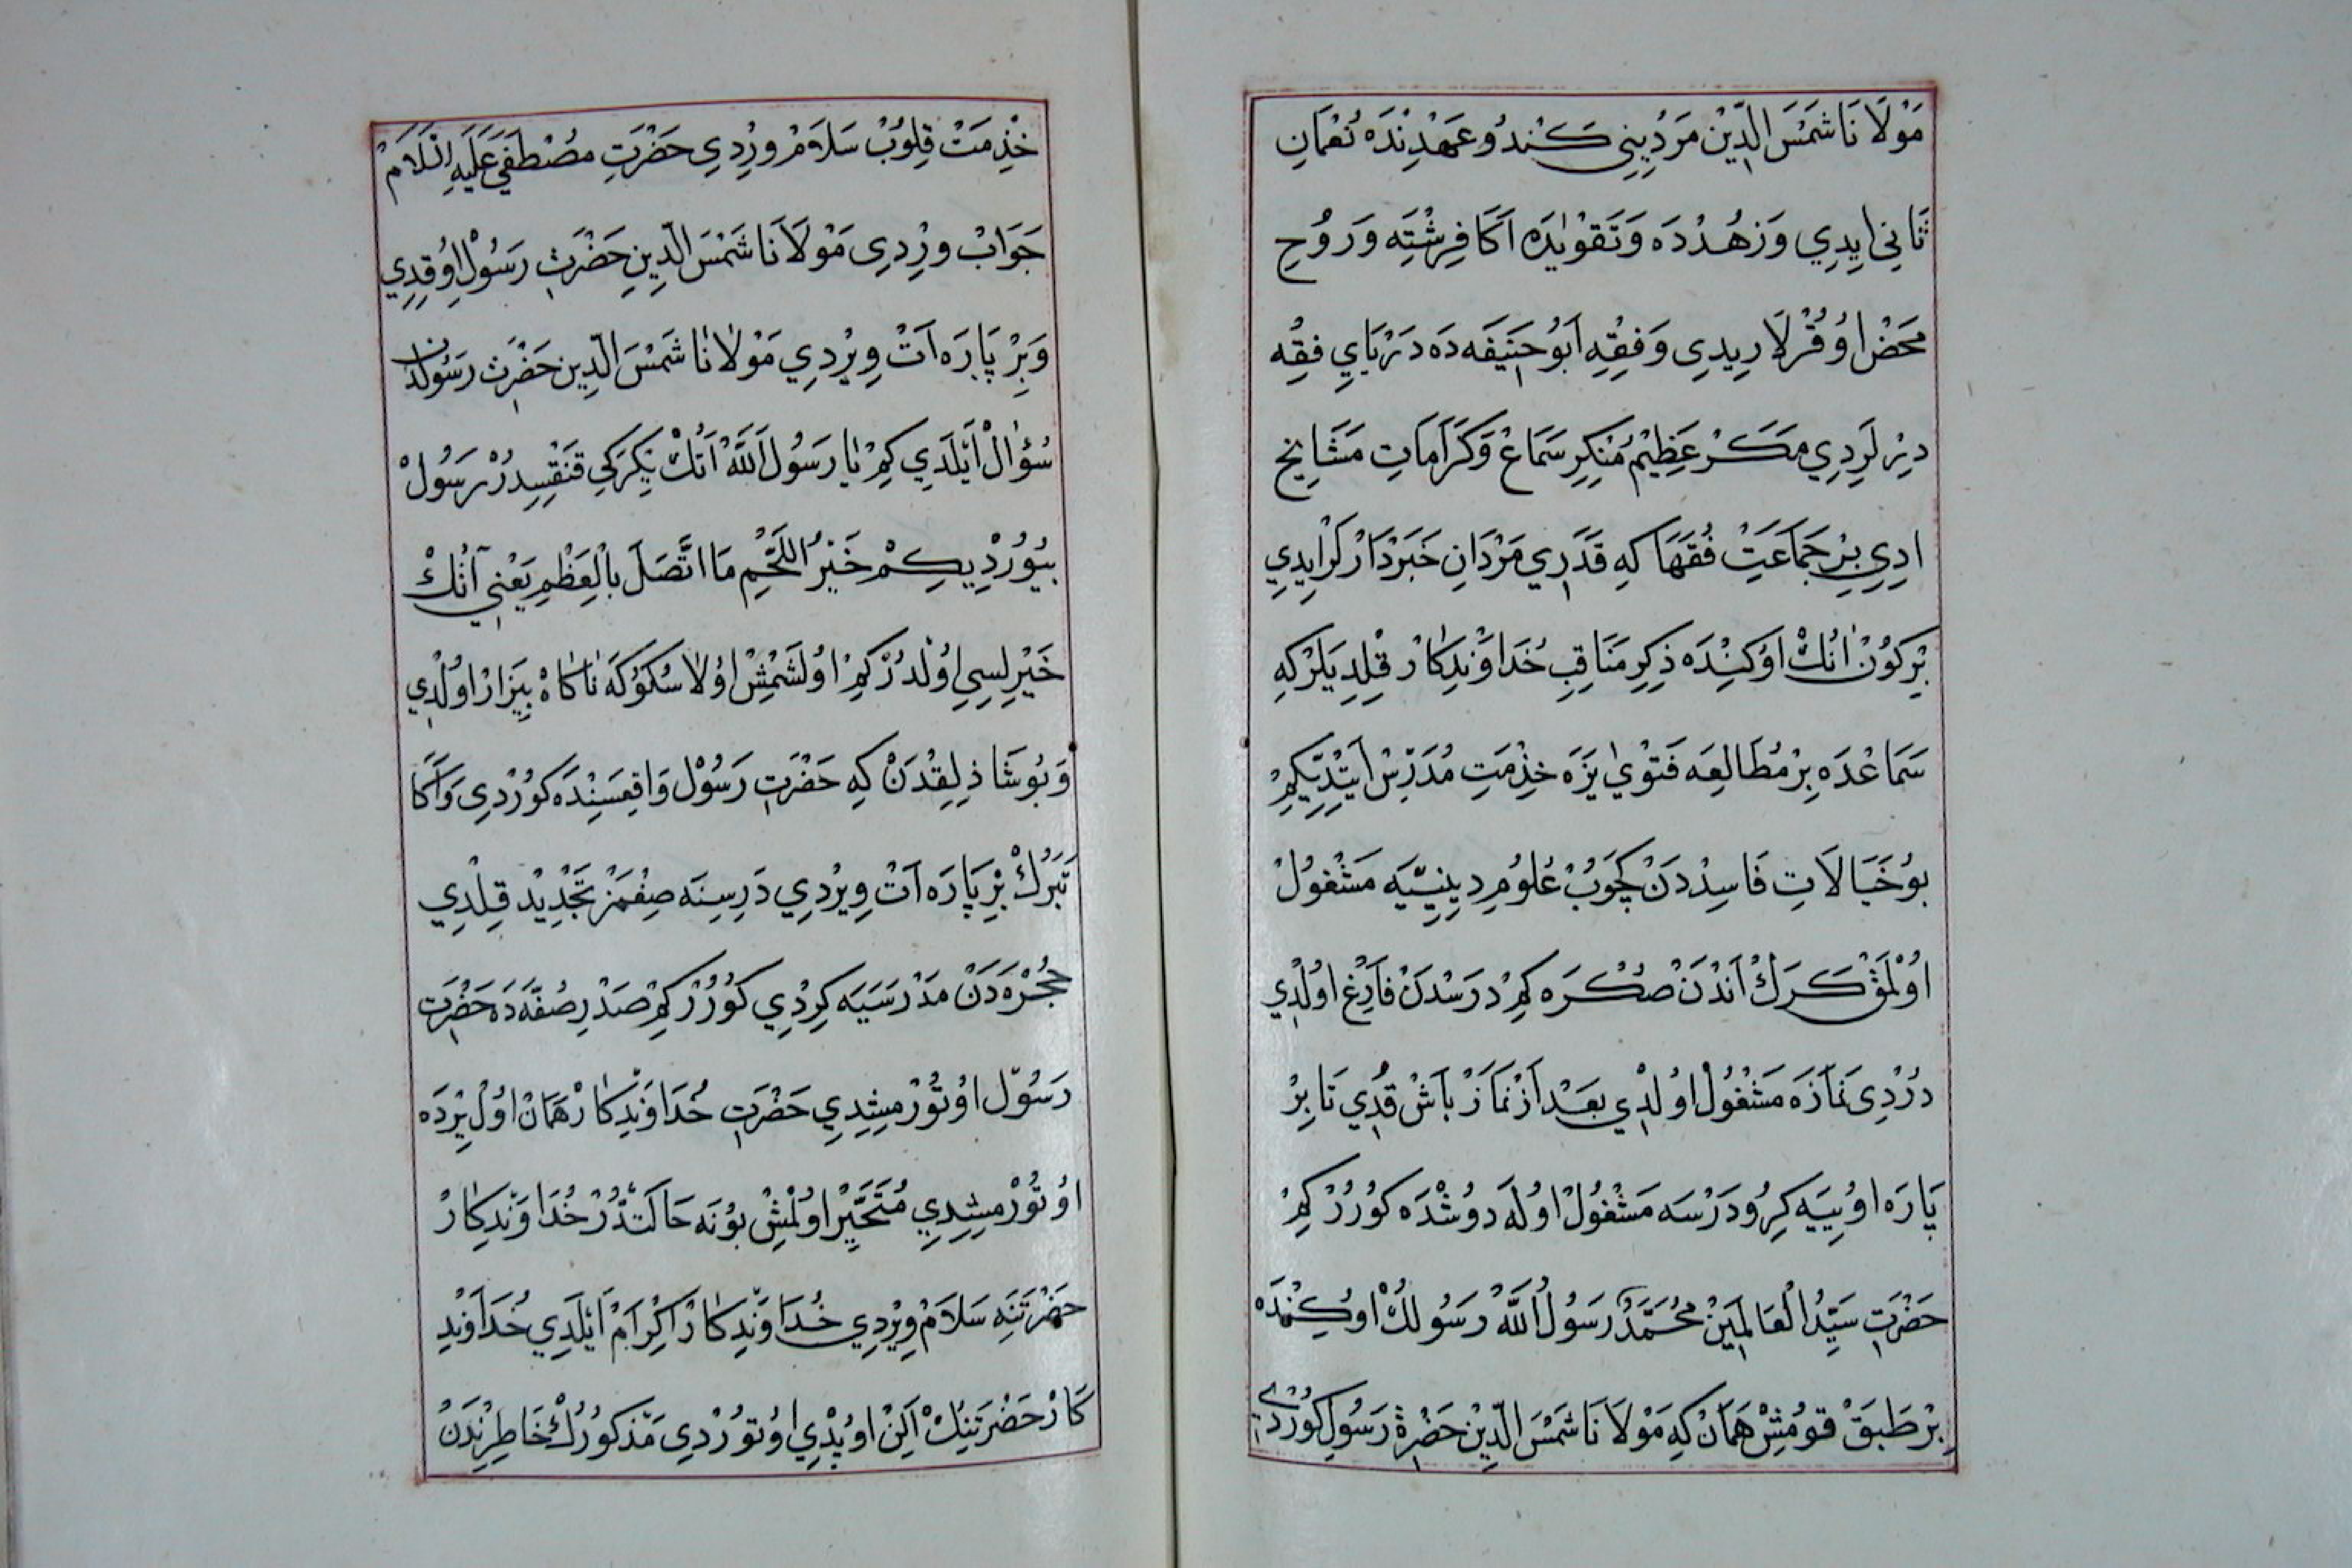 مَوْلَانَا شَمْسَ الدِّيْن مَرَدِينِي كَنْدُو عَهْدِنْدَه نُعْمَانِ
ثَانِي اِيدِي وَزُهْدْدَه وَتَقْوٰيدَه اَكَا فِرِشْتَه وَرُوحِ
مَحَضْ اوُقُرْلَارِيدِى وَفِقْهِ اَبُو حَنِيفَه دَه دَرْيَايِ فِقْه
دِيْرلَرِدِي مَكَرْ عَظِيْمْ مُنْكِرِ سَمَاعْ وَكَرَامَاتِ مَشَايِخ
ادِي بِرْ جَمَاعَتْ فُقَهَا كِه قَدَرِي مَرْدَانِ خَبَرْدَارْلَرْ ايدِي
بِرْ كُونْ اَنُكْ اوُكِنْدَه ذِكِرِ مَنَاقِبِ خُدَاوَنْدِكَارْ قِلِدِيلَرْ كِه
سَمَاعْدَه بِرْ مُطَالِعَه فَتْوٰي يَزَه خِذْمَتِ مُدَرِّسْ اَيِتْدِيكِمْ
بُو خَيَالَاتِ فَاسِدْدَنْ كَچُوبْ عُلُومِ دِينِيَّيَه مَشْغُولْ
اوُلْمَقْ كَرَكْ اَنْدَنْ صُكْرَه كِمْ دَرَسْدَنْ فَارِغْ اوُلْدِي
دُرْدِى نَمَازَه مَشْغُولْ اوُلْدِي بَعْدْ اَزْ نَمَازْ بَاشْ قُدِي تَا بِرْ
پَارَه اوُيِيَه كِرُو دَرْسَه مَشْغُولْ اوُلَه دُوشْدَه كُورُرْ كِمْ
حَضْرَتِ سَيِّدُ الْعَالَمِيْنَ مُحَمَّدْ رَسُولُ اللّٰهْ رَسُولُكْ اوُكِنْدَه
بِرْ طَبَقْ قُومُشْ هَمَانْ كِه مَوْلَانَا شَمْسَ الدِّيْن حَضْرَتِ رَسُولِ كُورْدِي
خِذْمَتْ قِلُوبْ سَلَامْ وِرْدِي حَضْرَتِ مُصْطَفَى عَلَيْهِ السَّلَامْ
جَوَابْ وِرْدِى مَوْلَانَا شَمْسَ الدِّينِ حَضْرَتِ رَسُولْ اوُقِدِي
وَبِرْ پَارَه اَتْ وِيرْدِي مَوْلَانَا شَمْسَ الدِّين حَضْرَتِ رَسُولْدَنْ
سُؤٰالْ اَيْلَدِي كِمْ يَا رَسُولَ اللّٰهْ اَنُكْ يَكْرَكِي قَنْقِسِدُرْ رَسُولْ
بُيُورْدِيكِمْ خَيْرُ اللَّحْمِ مَا اتَّصَلَ بِالْعَظْمِ يَعْنِي اَنُكْ
خَيْرلِسِي اوُلْدُرْكِمْ اوُلَشْمِشْ اوُلَا سُكُوكَه نَاكَاهْ بِيزَارْ اوُلْدِي
وَبُو شَاذِلِقْدَنْ كِه حَضْرَتِ رَسُولْ وَاقِعَسِنْدَه كُورْدِى وَاَكَا
تَبَرُّكْ بِرْ پَارَه اَتْ وِيرْدِي دَرِسِنَه صِغْمَزْ تَجْدِيدْ قِلْدِي
حُجْرَه دَنْ مَدْرَسَيَه كِرْدِي كُورُرْ كِمْ صَدْرِ صُفَّه دَه حَضْرَتِ
رَسُولْ اوُتُورْمِشِدِي حَضْرَتِ خُدَاوَنْدِكَارْ هَمَانْ اوُلْ يِرْدَه
اوُتُورْمِشِدِي مُتَحَيِّرْ اوُلْمِشْ بُو نَه حَالَتْدُرْ خُدَاوَنْدِكَارْ
حَضْرَتِنَه سَلَامْ وِيرْدِي خُدَاوَنْدِكَارْ اِكْرَامْ اَيْلَدِي خُدَاوَنْدِ
كَارْ حَضْرَتِنِكْ اَلِنْ اوُپْدِي اوُتُورْدِى مَذْكُورُكْ خَاطِرِنْدَنْ